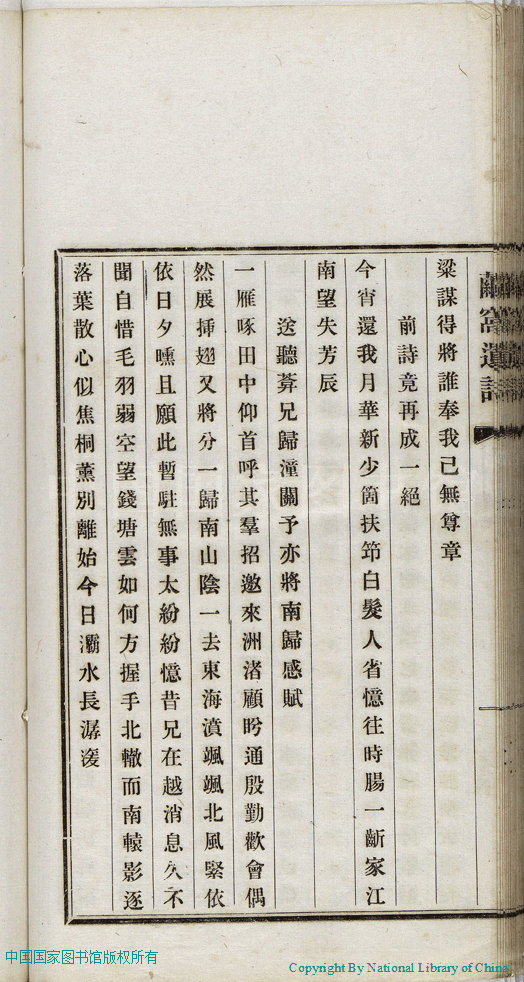 粱謀得將誰奉我已無尊章
前詩竟再成一絕
今宵還我月華新少箇扶筇白髮人省憶往時腸一斷家江
南望失芳辰
送聽葊兄歸潼關予亦將南歸感賦
一雁啄田中仰首呼其羣招邀來洲渚顧盻通殷勤歡會偶
然展揷翅又將分一歸南山陰一去東海濆颯颯北風緊依
依日夕曛且願此暫駐無事太紛紛憶昔兄在越消息久不
聞自惜毛羽弱空望錢塘雲如何方握手北轍而南轅影逐
落葉散心似焦桐薰別離始今日灞水長潺湲
繭窩遺詩
中国国家图书馆版权所有
Copyright By National Library of China